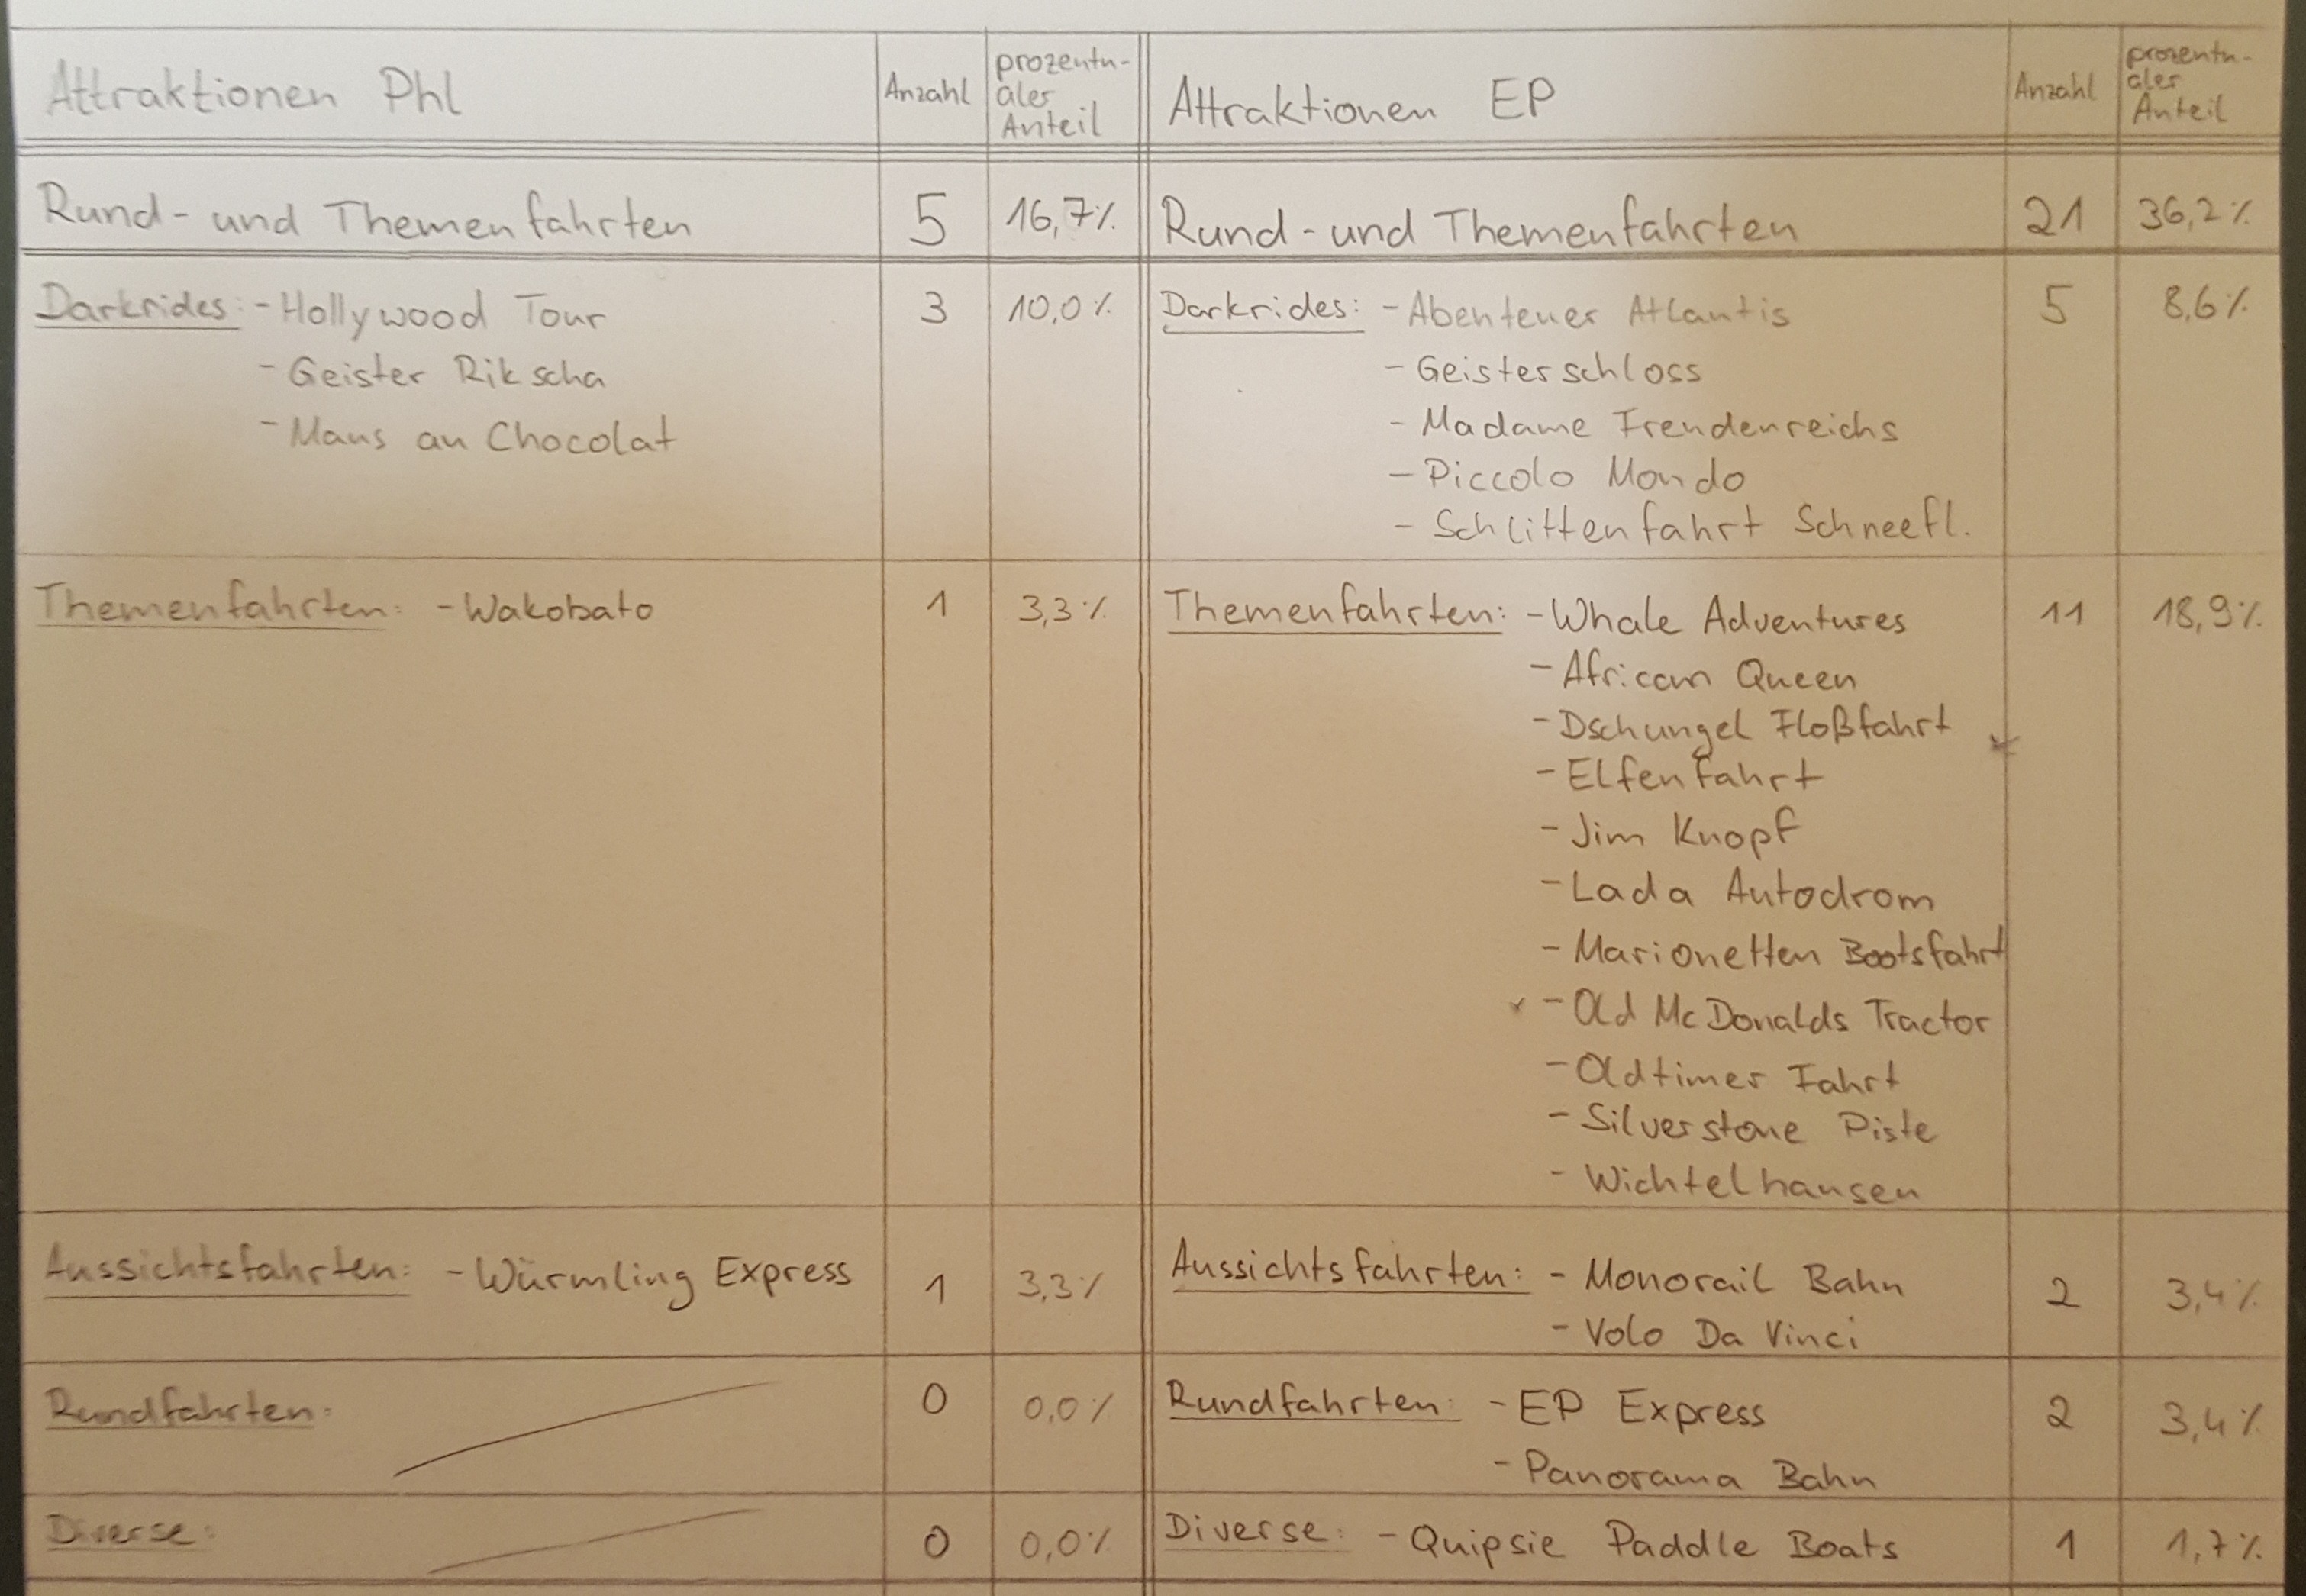 Attraktionen Phl | Anzahl | prozentu-aler Anteil | Attraktionen EP | Anzahl | prozentu-aler Anteil
Rund- und Themenfahrten | 5 | 16,7% | Rund- und Themenfahrten | 21 | 36,2%
Darkrides: - Hollywood Tour | 3 | 10,0% | Darkrides: - Abenteuer Atlantis | 5 | 8,6%
- Geister Rikscha | - Geisterschloss
- Maus au Chocolat | - Madame Freudenreichs
- Piccolo Mondo
- Schlittenfahrt Schneefl.
Themenfahrten: - Wakobato | 1 | 3,3% | Themenfahrten: - Whale Adventures | 11 | 18,9%
- African Queen
- Dschungel Floßfahrt
- Elfenfahrt
- Jim Knopf
- Lada Autodrom
- Marionetten Bootsfahrt
- Old McDonalds Tractor
- Oldtimer Fahrt
- Silverstone Piste
- Wichtelhausen
Aussichtsfahrten: - Würmling Express | 1 | 3,3% | Aussichtsfahrten: - Monorail Bahn | 2 | 3,4%
- Volo Da Vinci
Rundfahrten: | 0 | 0,0% | Rundfahrten: - EP Express | 2 | 3,4%
- Panorama Bahn
Diverse: | 0 | 0,0% | Diverse: - Quipsie Paddle Boats | 1 | 1,7%